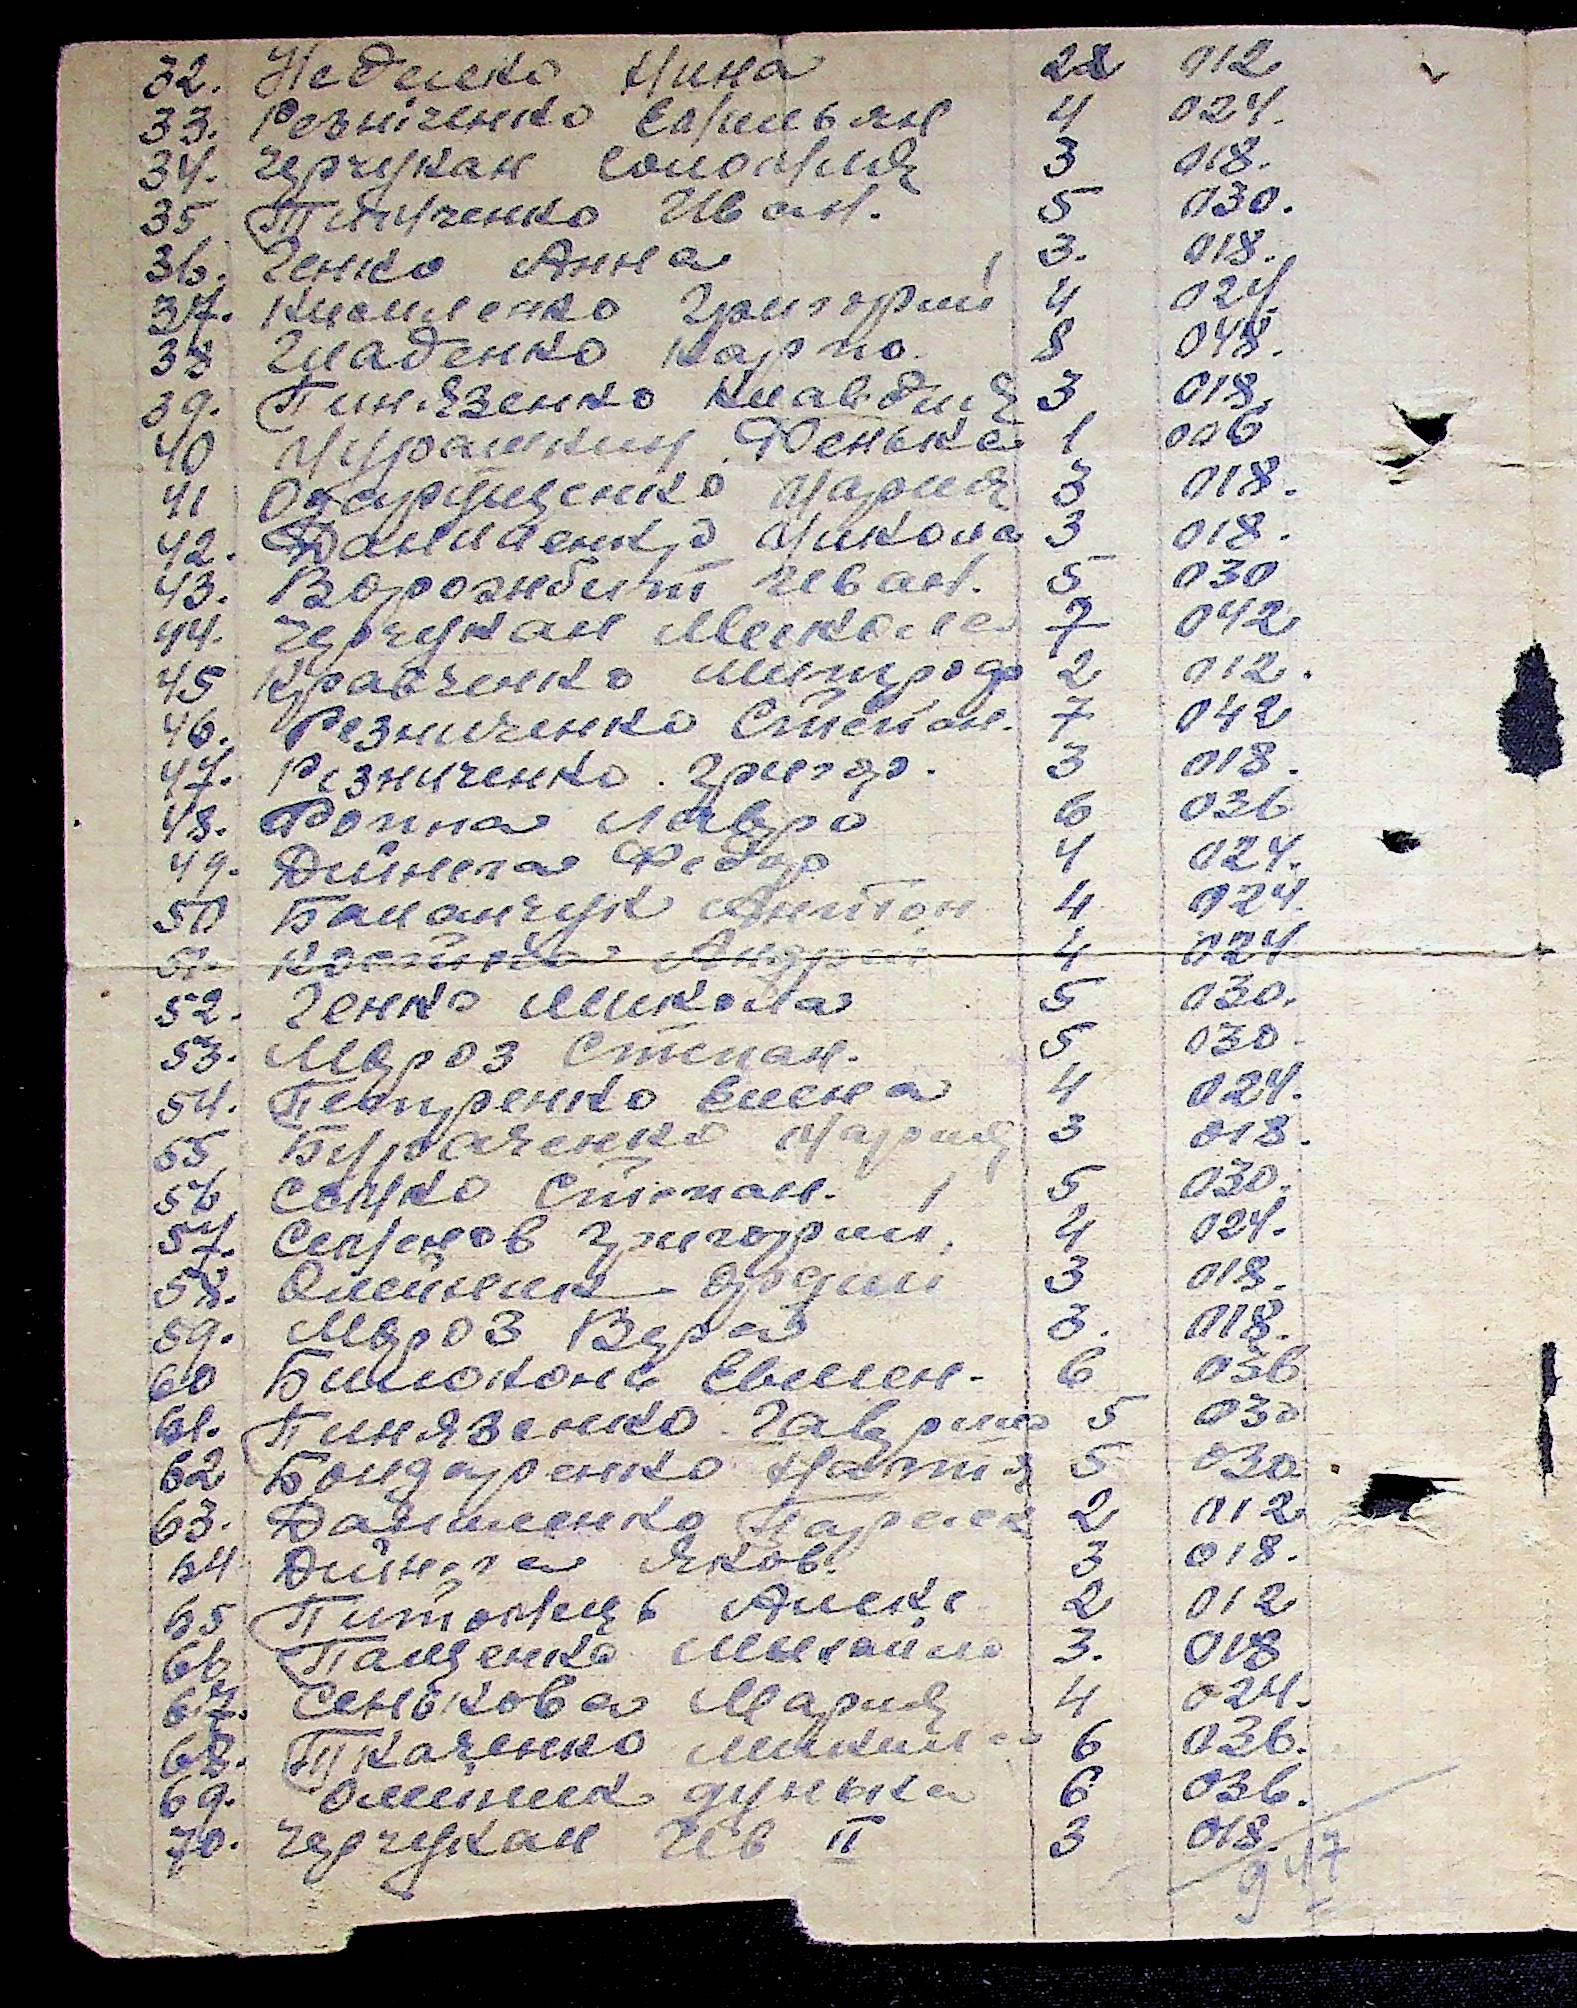 32. Неделко Нина 22 012
33. Резніченко Емильян 4 024.
34. Черчукан Соломия 3 018.
35 Тимченко Иван. 5 030.
36. Генко Анна 3. 018.
37. Григорий 4 024.
38 Гладенко Карпо. 8 048.
39. Пинязенко Клавдия 3 018.
40 Чурашкин Фенька 1 006
41 Мария 3 018.
42. Даниленко Микола 3 018.
43. Ворожбит Иван. 5 030
44. Черчукан Микола 7 042
45 Кравченко Митроф 2 012.
46. Резниченко Степан. 7 042
47. Резниченко. Григор. 3 018.
48. Ропна Лавро 6 036
49. Дейнега Федор 4 024.
50 Баланчук Антон 4 024.
51. Андрей 4 024
52. Генко Микола 5 030.
53. Мороз Степан. 5 030.
54. Петренко Елена 4 024.
55 Бурдаченко Мария 3 018.
56 Сочко Степан. 5 030.
57. Семенов Григорий, 4 024.
58. Олейник 3 018.
59. Мороз Вера 3. 018.
60 Билоконь Евмен. 6 036
61. Пинязенко Гаврило 5 030
62 Бондаренко Натия 5 030
63. Даниленко 2 012
64 Дейнега Яков. 3 018.
65 Алекс 2 012
66 Пащенко Михайло 3. 018
67. Сенькова Мария 4 024.
68. Ткаченко 6 036.
69. Олейник дунька 6 036.
70. Черчукан Ив II 3 018.
947